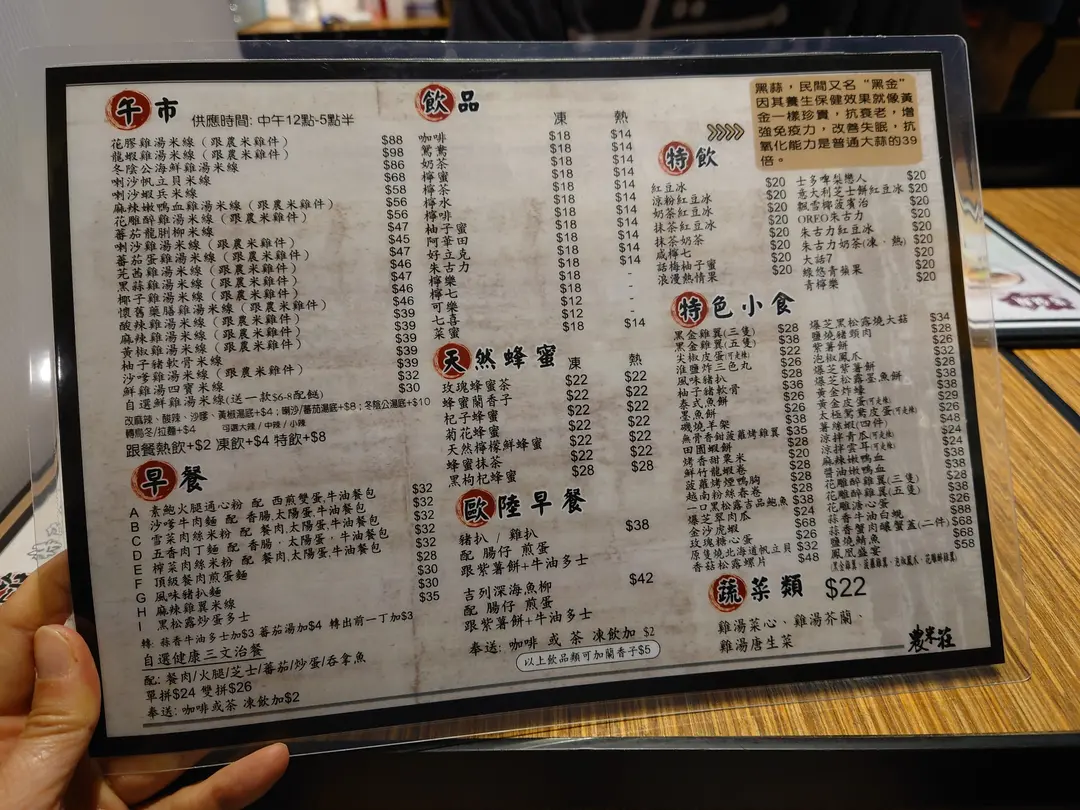 午市
供應時間: 中午12點-5點半
花膠雞湯米線（跟農米雞件） $88
龍蝦雞湯米線（跟農米雞件） $98
冬陰公海鮮雞湯米線 $86
喇沙帆立貝米線 $68
喇沙蝦兵米線 $58
麻辣嫩鴨血雞湯米線（跟農米雞件） $56
花雕醉雞湯米線（跟農米雞件） $56
蕃茄龍脷柳米線 $47
喇沙雞湯米線（跟農米雞件） $45
蕃茄蛋雞湯米線（跟農米雞件） $47
芫茜雞湯米線（跟農米雞件） $46
黑蒜雞湯米線（跟農米雞件） $47
椰子雞湯米線（跟農米雞件） $46
懷舊藥膳雞湯米線（跟農米雞件） $46
酸辣雞湯米線（跟農米雞件） $39
麻辣雞湯米線（跟農米雞件） $39
黃椒雞湯米線（跟農米雞件） $39
柚子豬軟骨米線 $39
沙嗲雞湯米線（跟農米雞件） $39
鮮雞湯四寶米線 $32
自選鮮雞湯米線(送一款$6-8配餸) $30
改麻辣、酸辣、沙嗲、黃椒湯底+$4；喇沙/蕃茄湯底+$8；冬陰公湯底+$10
轉烏冬/拉麵+$4 可選大辣 / 中辣 / 小辣
跟餐熱飲+$2 凍飲+$4 特飲+$8
早餐
A 素鮑火腿通心粉 配 西煎雙蛋,牛油餐包 $32
B 沙嗲牛肉麵 配 香腸,太陽蛋,牛油餐包 $32
C 雪菜肉絲米粉 配 餐肉,太陽蛋,牛油餐包 $32
D 五香肉丁麵 配 香腸，太陽蛋，牛油餐包 $32
E 榨菜肉絲米粉 配 餐肉,太陽蛋,牛油餐包 $32
F 頂級餐肉煎蛋麵 $28
G 風味豬扒麵 $30
H 麻辣雞翼米線 $30
I 黑松露炒蛋多士 $35
轉: 蒜香牛油多士加$3 蕃茄湯加$4 轉出前一丁加$3
自選健康三文治餐
配: 餐肉/火腿/芝士/蕃茄/炒蛋/吞拿魚
單拼$24 雙拼$26
奉送: 咖啡或茶 凍飲加$2
飲品 凍 熱
咖啡 $18 $14
鴛鴦 $18 $14
奶茶 $18 $14
檸蜜 $18 $14
檸茶 $18 $14
檸水 $18 $14
檸啡 $18 $14
柚子蜜 $18 $14
阿華田 $18 $14
好立克 $18 $14
朱古力 $18 $14
檸樂 $18 -
檸七 $18 -
可樂 $12 -
七喜 $12 -
菜蜜 $18 $14
天然蜂蜜 凍 熱
玫瑰蜂蜜茶 $22 $22
蜂蜜蘭香子 $22 $22
杞子蜂蜜 $22 $22
菊花蜂蜜 $22 $22
天然檸檬鮮蜂蜜 $22 $22
蜂蜜抹茶 $22 $22
黑枸杞蜂蜜 $28 $28
歐陸早餐
豬扒 / 雞扒 $38
配 腸仔 煎蛋
跟紫薯餅+牛油多士
吉列深海魚柳 $42
配 腸仔 煎蛋
跟紫薯餅+牛油多士
奉送: 咖啡 或 茶 凍飲加 $2
以上飲品類可加蘭香子$5
黑蒜，民間又名“黑金”
因其養生保健效果就像黃
金一樣珍貴，抗衰老，增
強免疫力，改善失眠，抗
氧化能力是普通大蒜的39
倍。
特飲
紅豆冰 $20
涼粉紅豆冰 $20
奶茶紅豆冰 $20
抹茶紅豆冰 $20
抹茶奶茶 $20
咸檸七 $20
話梅柚子蜜 $20
浪漫熱情果 $20
士多啤梨戀人 $20
意大利芝士餅紅豆冰 $20
飄雪椰菠賓治 $20
OREO朱古力 $20
朱古力紅豆冰 $20
朱古力奶茶(凍，熱) $20
大話7 $20
綠悠青蘋果 $20
青檸樂 $20
特色小食
黑金雞翼(三隻) $28
黑金雞翼(五隻) $38
尖椒皮蛋(可走辣) $22
淮鹽炸三色丸 $26
風味豬扒 $28
柚子豬軟骨 $36
泰式魚餅
墨魚餅
磯燒羊架
無骨香甜菠蘿烤雞翼 $35
田園蝦餅
烤香甜粟米 $20
鮮竹龍蝦卷
菠蘿烤煙鴨胸
越南粉絲春卷
一口黑松露吉品鮑魚 $38
爆芝翠肉瓜 $24
金沙虎蝦 $68
玫瑰糖心蛋
原隻燒北海道帆立貝 $32
香菇松露螺片 $48
爆芝黑松露燒大菇 $34
鹽燒豬頸肉 $28
紫薯餅 $26
泡椒鳳爪
爆芝紫薯餅
爆芝松露墨魚餅
黃金炸蠔
黃金皮蛋(可走辣)
太極鴛鴦皮蛋(可走辣)
薯絲蝦(四件) $48
涼拌青瓜(可走辣) $24
涼拌雲耳(可走辣) $24
麻辣嫩鴨血 $38
醬油嫩鴨血 $38
花雕醉雞翼(三隻) $28
花雕醉雞翼(五隻) $38
花雕溏心蛋
蒜香牛油白蜆 $88
蒜香蟹肉釀蟹蓋(二件) $68
鹽燒鯖魚 $68
鳳凰盛宴 $58
蔬菜類 $22
雞湯菜心、雞湯芥蘭、
雞湯唐生菜
農米莊